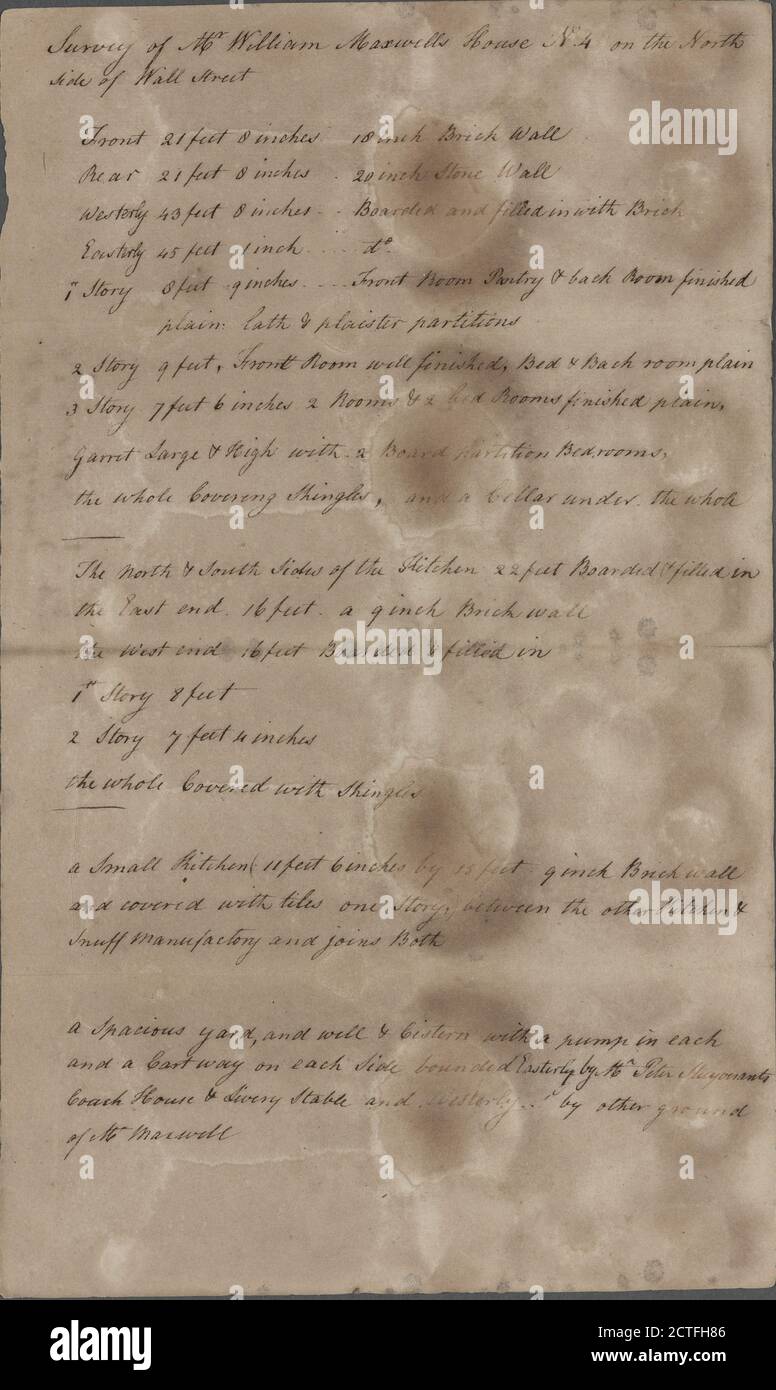 Survey of Mr William Maxwells House No 4 on the North
side of Wall Street
Front 21 feet 8 inches 18 inch Brick Wall
Rear 21 feet 8 inches . 20 inch Stone Wall
Westerly 43 feet 8 inches . . Boarded and filled in with Brick
Easterly 45 feet 1 inch . . . . do.
1st Story 8 feet 9 inches . . . Front Room Pantry & back Room finished
plain: lath & plaister partitions
2 Story 9 feet, Front Room well finished, Bed & Back room plain
3 Story 7 feet 6 inches 2 Rooms & 2 bed Rooms finished plain,
Garret Large & High with 2 Board Partition Bedrooms,
the whole Covering Shingles, and a Cellar under the whole
The North & South Sides of the Kitchen 22 feet Boarded & filled in
the East end 16 feet a 9 inch Brick wall
the West end 16 feet Boarded & filled in
1st Story 8 feet
2 Story 7 feet 4 inches
the whole Covered with Shingles
a Small Kitchen 11 feet 6 inches by feet 9 inch Brick wall
and covered with tiles one Story, between the other Kitchen &
Snuff Manufactory and joins Both
a Spacious yard, and well & Cistern with a pump in each
and a Cartway on each Side bounded Easterly by Mr Peter
Coach House & Livery Stable and Westerly by other ground
of Mr Maxwell
alamy
alamy
alamy
alamy
Image ID: 2CTFH86
www.alamy.com